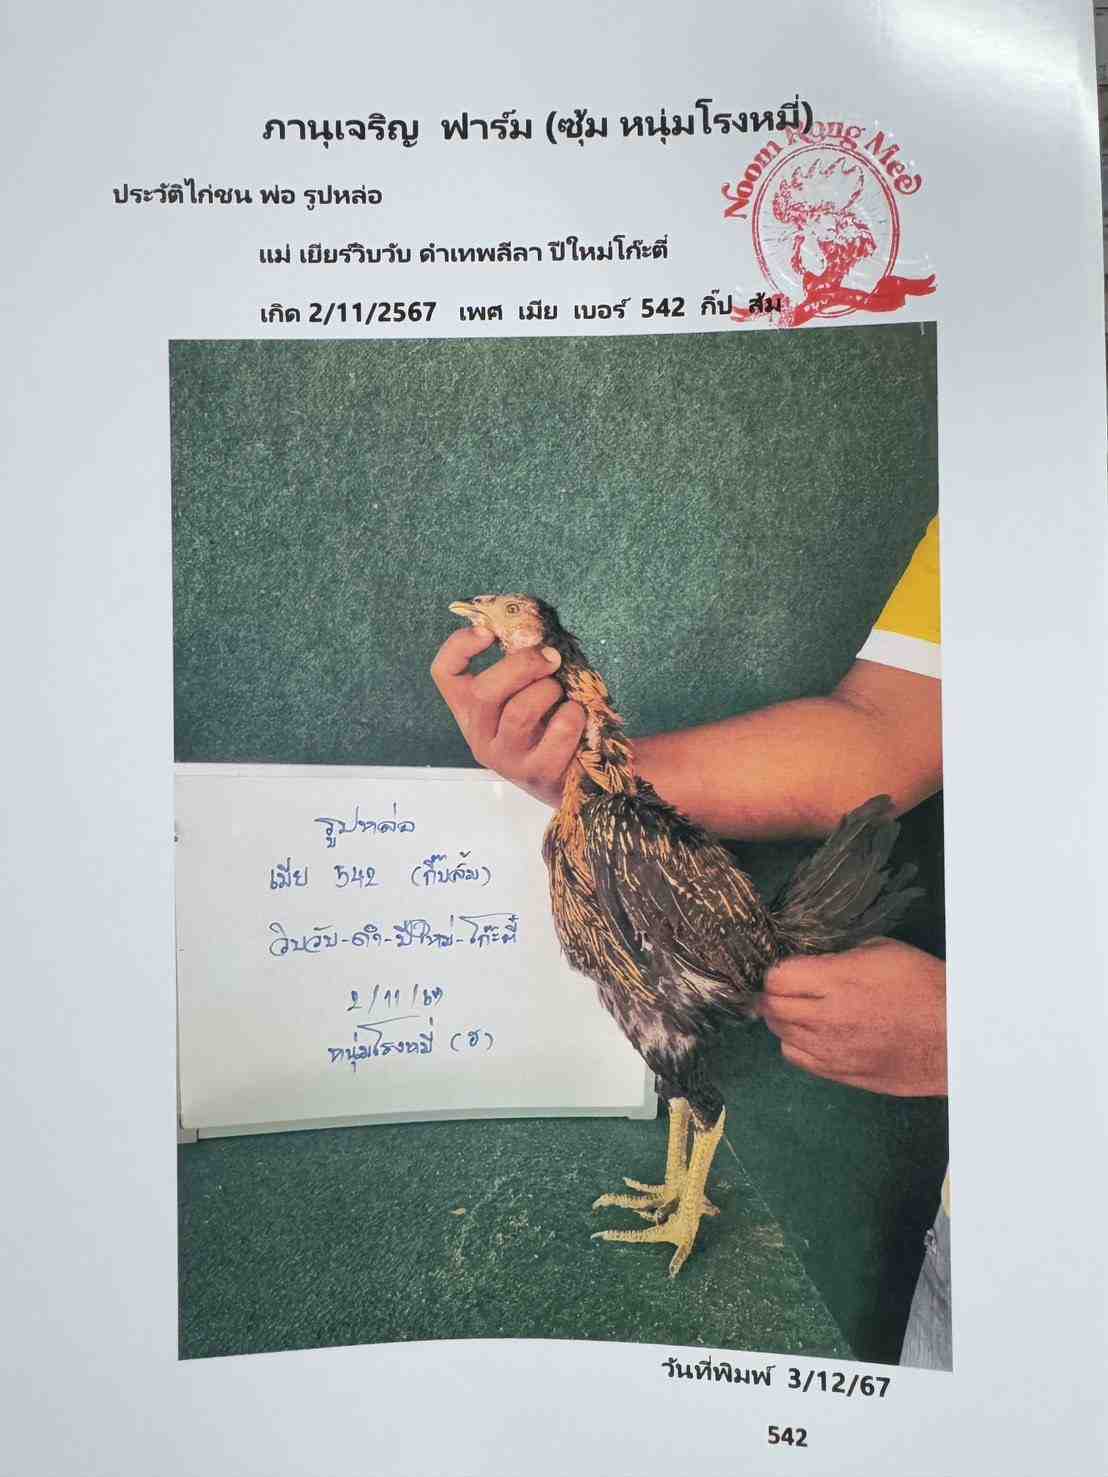 ภานุเจริญ ฟาร์ม (ซุ้ม หนุ่มโรงหมี่)
Noom Rong Mee
ประวัติไก่ชน พ่อ รูปหล่อ
แม่ เยียร์วิบวับ ดำเทพลีลา ปีใหม่โก๊ะตี่
เกิด 2/11/2567 เพศ เมีย เบอร์ 542 กิ๊ป ส้ม
รูปหล่อ
เมีย 542 (กิ๊บส้ม)
วิบวับ-ดำ-ปีใหม่-โก๊ะตี๋
2/11/67
หนุ่มโรงหมี่ (ฮ)
วันที่พิมพ์ 3/12/67
542